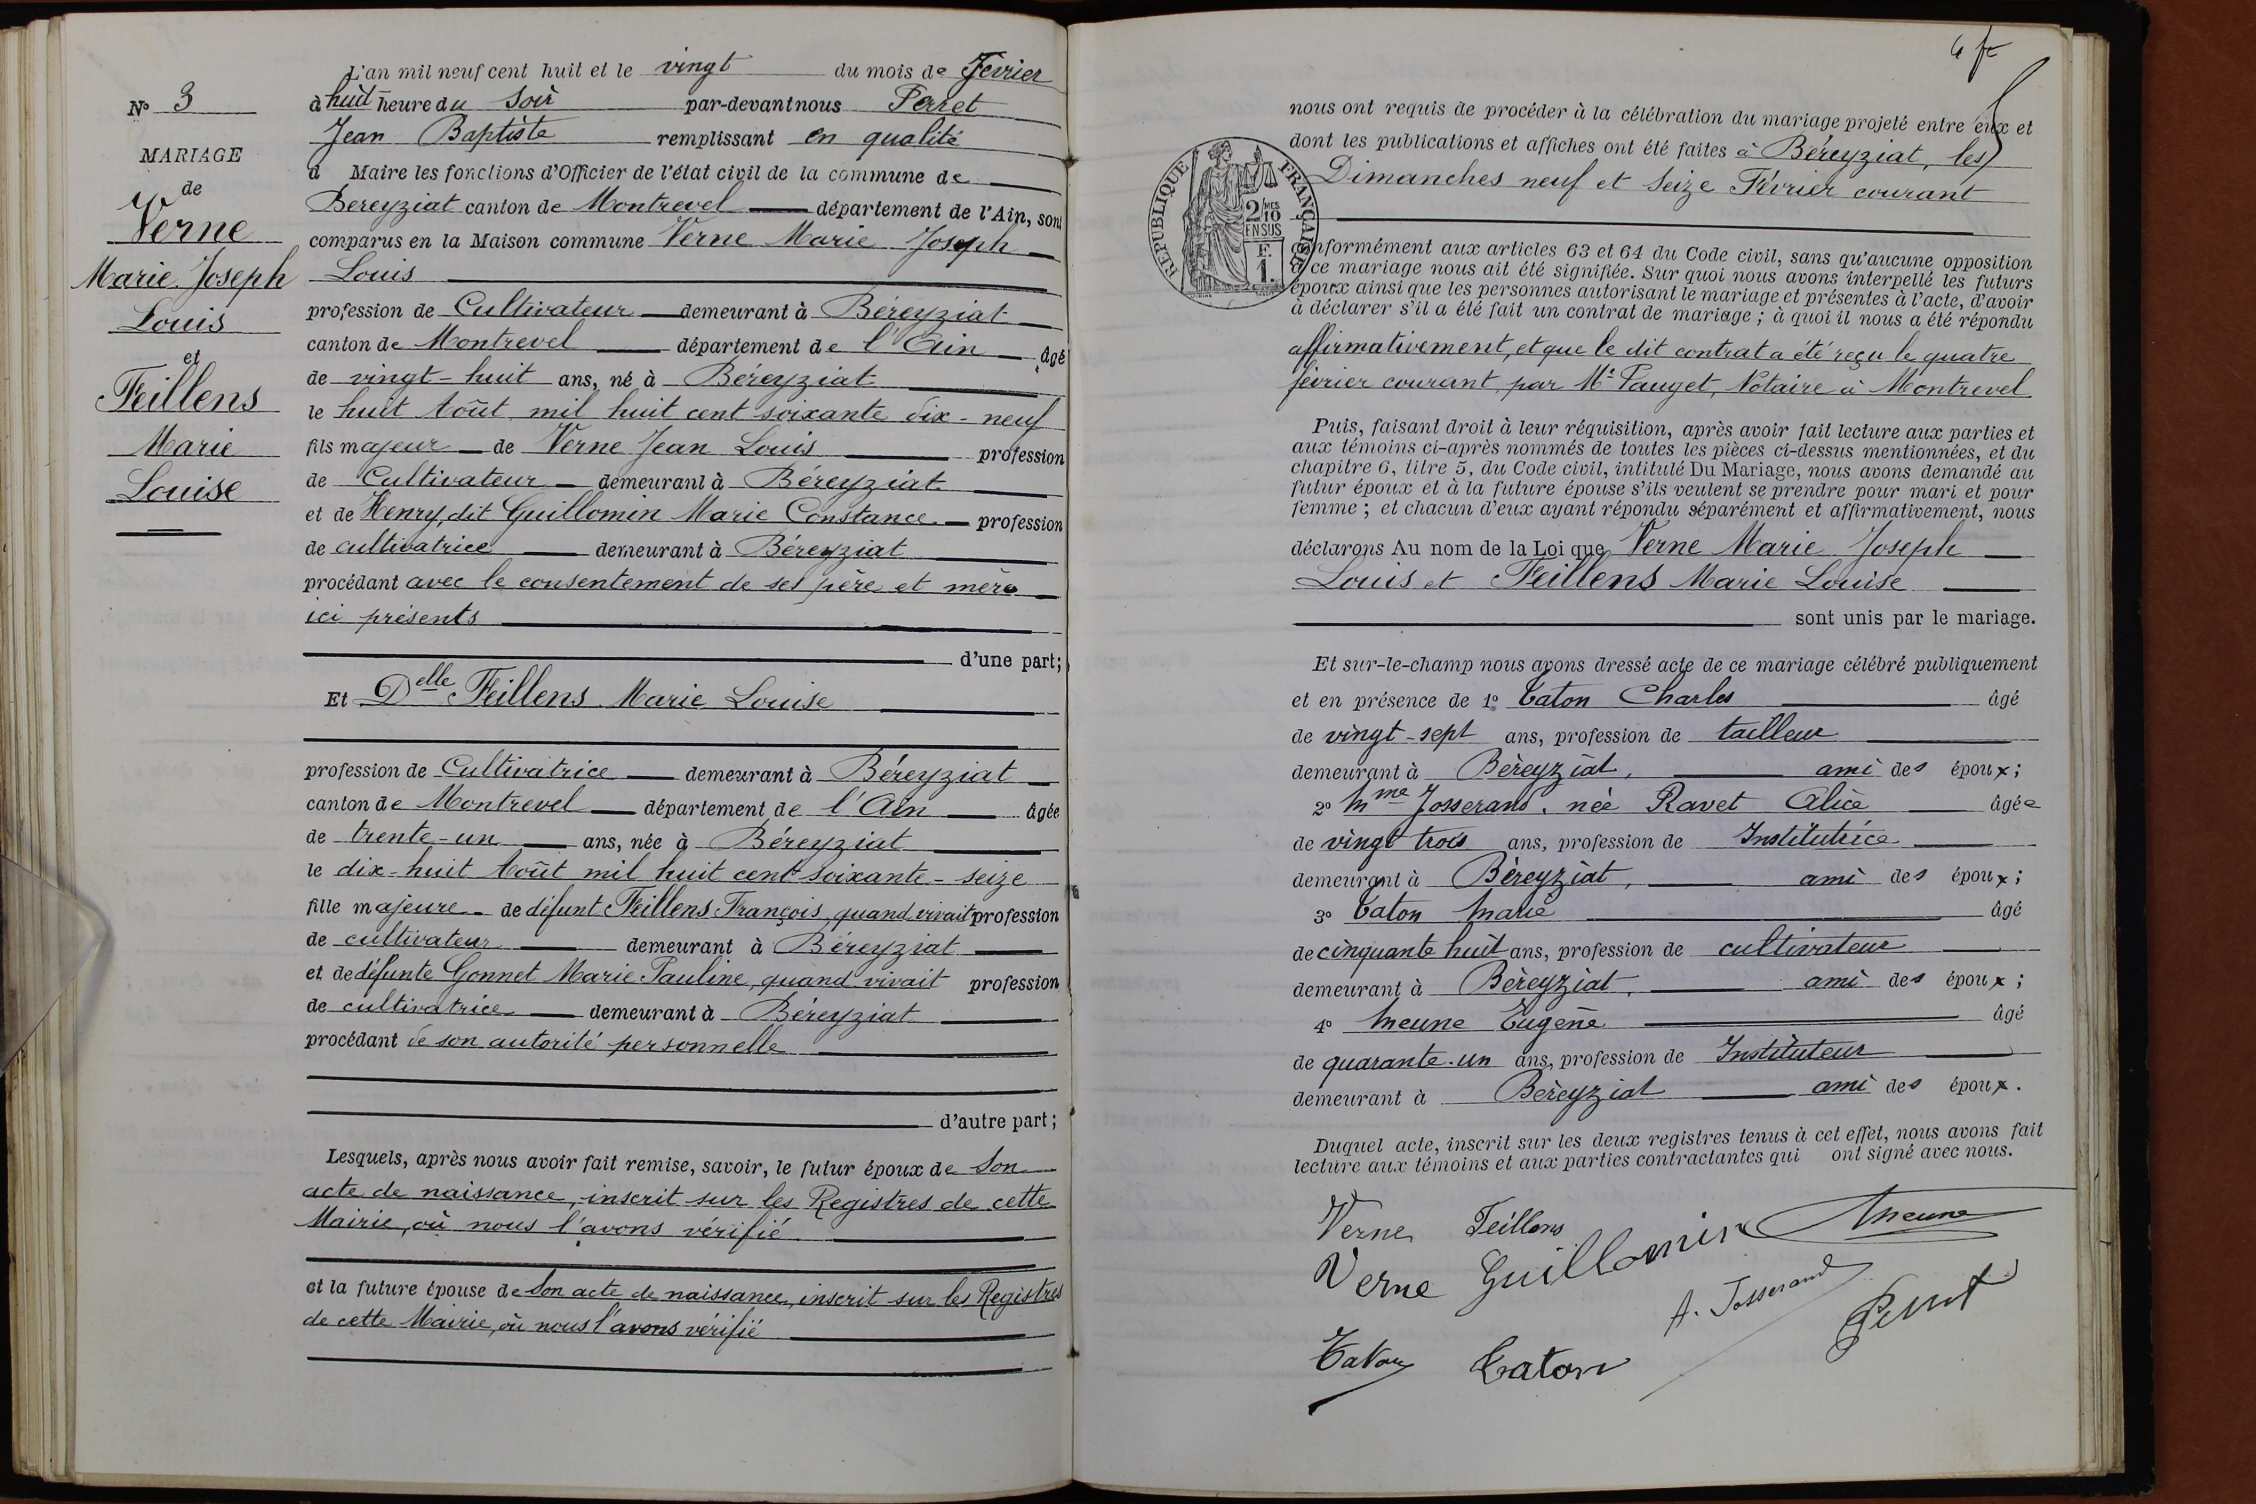 N° 3
MARIAGE
de
Verne
Marie Joseph
Louis
et
Feillens
Marie
Louise
L'an mil neuf cent huit et le vingt du mois de Février
à huit heure du Soir par-devant nous Perret
Jean Baptiste remplissant en qualité
d Maire les fonctions d'Officier de l'état civil de la commune de
Béreyziat canton de Montrevel département de l'Ain, sont
comparus en la Maison commune Verne Marie Joseph
Louis
profession de Cultivateur demeurant à Béreyziat
canton de Montrevel département de l'Ain âgé
de vingt-huit ans, né à Béreyziat
le huit Août mil huit cent soixante dix-neuf
fils majeur de Verne Jean Louis profession
de Cultivateur demeurant à Béreyziat
et de Henry, dit Guillomin Marie Constance profession
de cultivatrice demeurant à Béreyziat
procédant avec le consentement de ses père et mère
ici présents
d'une part;
Et Delle Feillens Marie Louise
profession de Cultivatrice demeurant à Béreyziat
canton de Montrevel département de l'Ain âgée
de trente-un ans, née à Béreyziat
le dix-huit Août mil huit cent soixante-seize
fille majeure de défunt Feillens François, quand vivait profession
de cultivateur demeurant à Béreyziat
et de défunte Gonnet Marie Pauline, quand vivait profession
de cultivatrice demeurant à Béreyziat
procédant de son autorité personnelle
d'autre part;
Lesquels, après nous avoir fait remise, savoir, le futur époux de son
acte de naissance, inscrit sur les Registres de cette
Mairie, où nous l'avons vérifié
et la future épouse de son acte de naissance, inscrit sur les Registres
de cette Mairie, où nous l'avons vérifié
nous ont requis de procéder à la célébration du mariage projeté entre eux et
dont les publications et affiches ont été faites à Béreyziat, les
Dimanches neuf et seize Février courant
REPUBLIQUE FRANÇAISE
2/10 MES
EN SUS
F.
1.
conformément aux articles 63 et 64 du Code civil, sans qu'aucune opposition
à ce mariage nous ait été signifiée. Sur quoi nous avons interpellé les futurs
époux ainsi que les personnes autorisant le mariage et présentes à l'acte, d'avoir
à déclarer s'il a été fait un contrat de mariage; à quoi il nous a été répondu
affirmativement, et que le dit contrat a été reçu le quatre
février courant, par Me Pauget, Notaire à Montrevel
Puis, faisant droit à leur réquisition, après avoir fait lecture aux parties et
aux témoins ci-après nommés de toutes les pièces ci-dessus mentionnées, et du
chapitre 6, titre 5, du Code civil, intitulé Du Mariage, nous avons demandé au
futur époux et à la future épouse s'ils veulent se prendre pour mari et pour
femme; et chacun d'eux ayant répondu séparément et affirmativement, nous
déclarons Au nom de la Loi que Verne Marie Joseph
Louis et Feillens Marie Louise
sont unis par le mariage.
Et sur-le-champ nous avons dressé acte de ce mariage célébré publiquement
et en présence de 1° Caton Charles âgé
de vingt-sept ans, profession de tailleur
demeurant à Béreyziat, ami des époux;
2° Mme Josserand, née Ravet Alice âgée
de vingt trois ans, profession de Institutrice
demeurant à Béreyziat, ami des époux;
3° Caton Marie âgé
de cinquante huit ans, profession de cultivateur
demeurant à Béreyziat, ami des époux;
4° Meune Eugène âgé
de quarante-un ans, profession de Instituteur
demeurant à Béreyziat ami des époux.
Duquel acte, inscrit sur les deux registres tenus à cet effet, nous avons fait
lecture aux témoins et aux parties contractantes qui ont signé avec nous.
Verne Feillens Meune
Verne Guillomin
A. Josserand Perret
Caton Caton